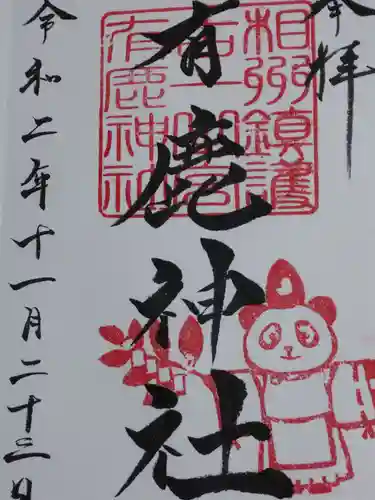 奉拝
相州鎮護
有鹿神社
有鹿神社
令和二年十一月二十三日